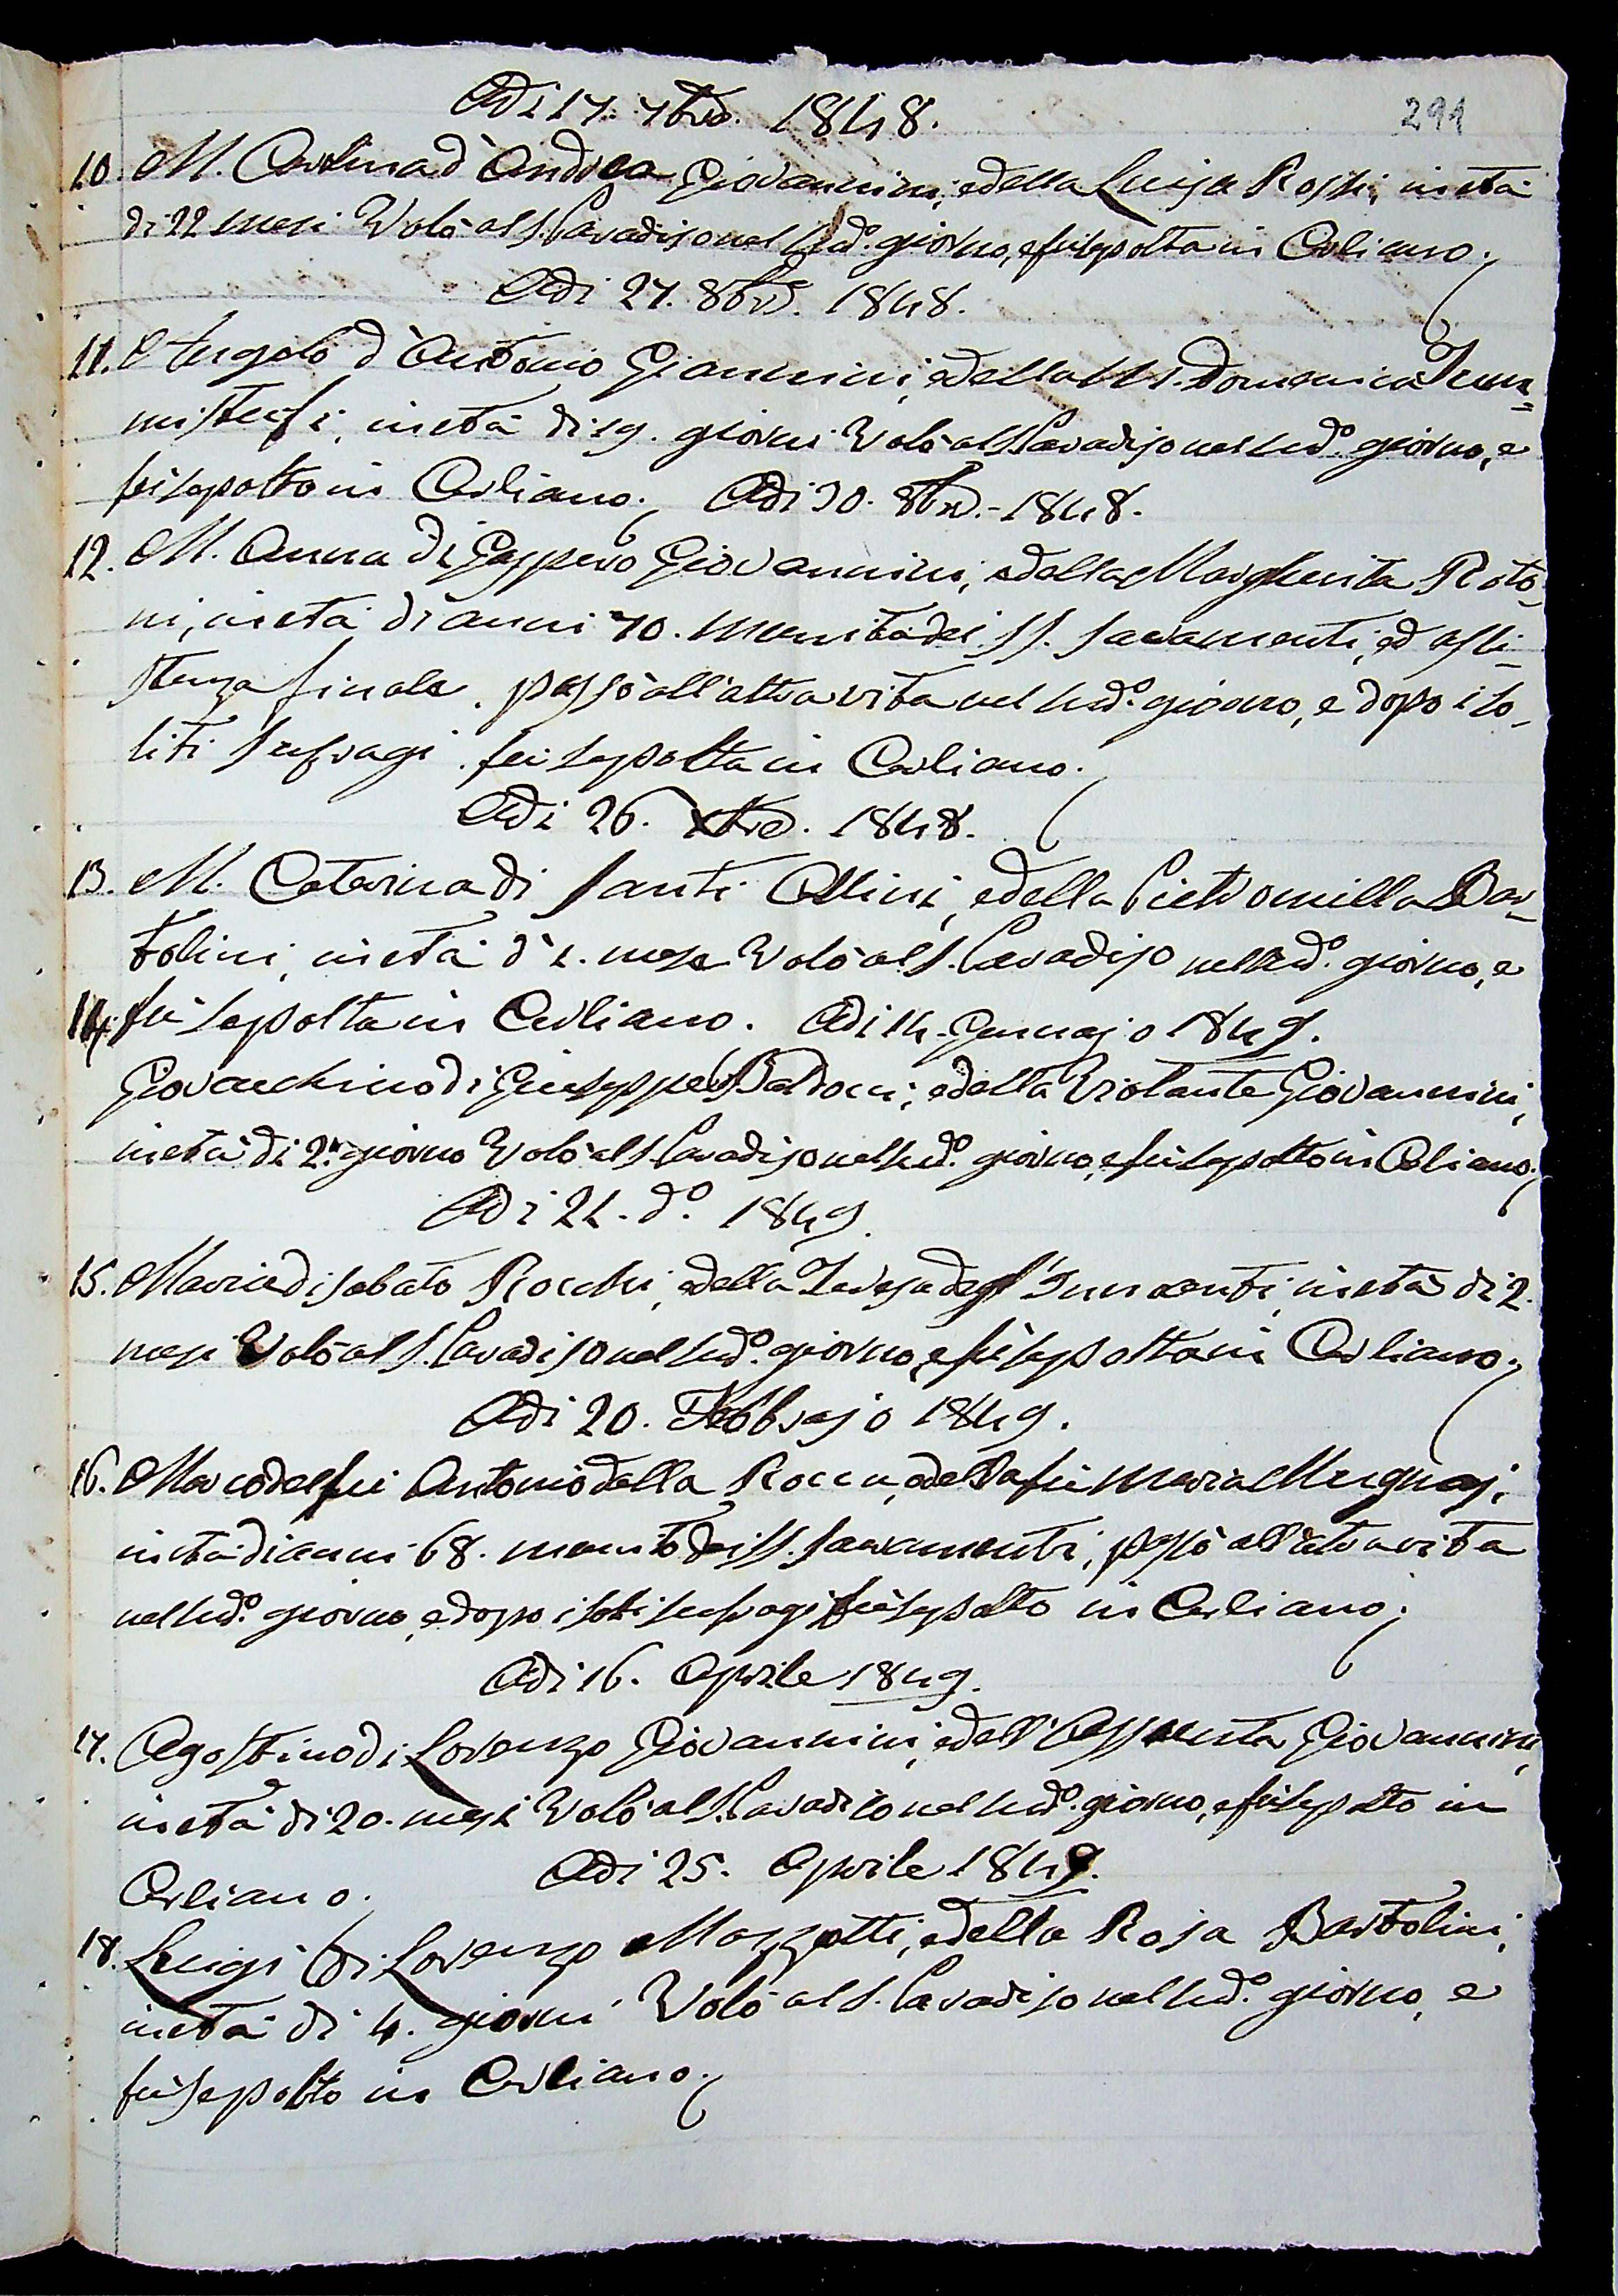 Adi 17. 7bre. 1848.
291
10. M. Carolina d'Andrea Giovannini, e della Luisa Rossi, in età
di 22 mesi Volò al S. Paradiso nel sud.º giorno, e fù sepolta in Carliano.
Adi 27. 8bre. 1848.
11. Angelo d'Antonio Giannini, e della M. Domenica
in età di 19. giorni Volò al S. Paradiso nel sud.º giorno, e
fù sepolto in Carliano. Adi 30. 8bre. 1848.
12. M. Anna di Gaspero Giovannini, e della Margherita Roto-
ni, in età di anni 70. munita dei SS. Sacramenti, ed assi-
stenza finale, passò all'altra vita nel sud.º giorno, e dopo i so-
liti sufragi fù sepolta in Carliano.
Adi 26. Xbre. 1848.
13. M. Caterina di Santi Allini, e della Pietromilla Bar-
tolini, in età d' 1. mese Volò al S. Paradiso nel sud.º giorno, e
14. fù sepolta in Carliano. Adi 14. Gennajo 1849.
Giovacchino di Giuseppe Baldocci, e della Violante Giovannini,
in età di 2. giorno Volò al S. Paradiso nel sud.º giorno, e fù sepolto in Carliano.
Adi 21. d.º 1849.
15. Maria di Sabato Rocchi, e della Teresa degl'Innocenti, in età di 2.
mesi Volò al S. Paradiso nel sud.º giorno, e fù sepolta in Carliano.
Adi 20. Febbrajo 1849.
16. Marco del fù Antonio della Rocca, e della fù Maria Mugnaj,
in età di anni 68. munito dei SS. Sacramenti, passò all'altra vita
nel sud.º giorno, e dopo i soliti sufragi fù sepolto in Carliano.
Adi 16. Aprile 1849.
17. Agostino di Lorenzo Giovannini, e dell'Assunta Giovannini,
in età di 20. mesi Volò al S. Paradiso nel sud.º giorno, e fù sepolto in
Carliano. Adi 25. Aprile 1849.
18. Luigi di Lorenzo Mazzotti, e della Rosa Bartolini,
in età di 4. giorni Volò al S. Paradiso nel sud.º giorno, e
fù sepolto in Carliano.